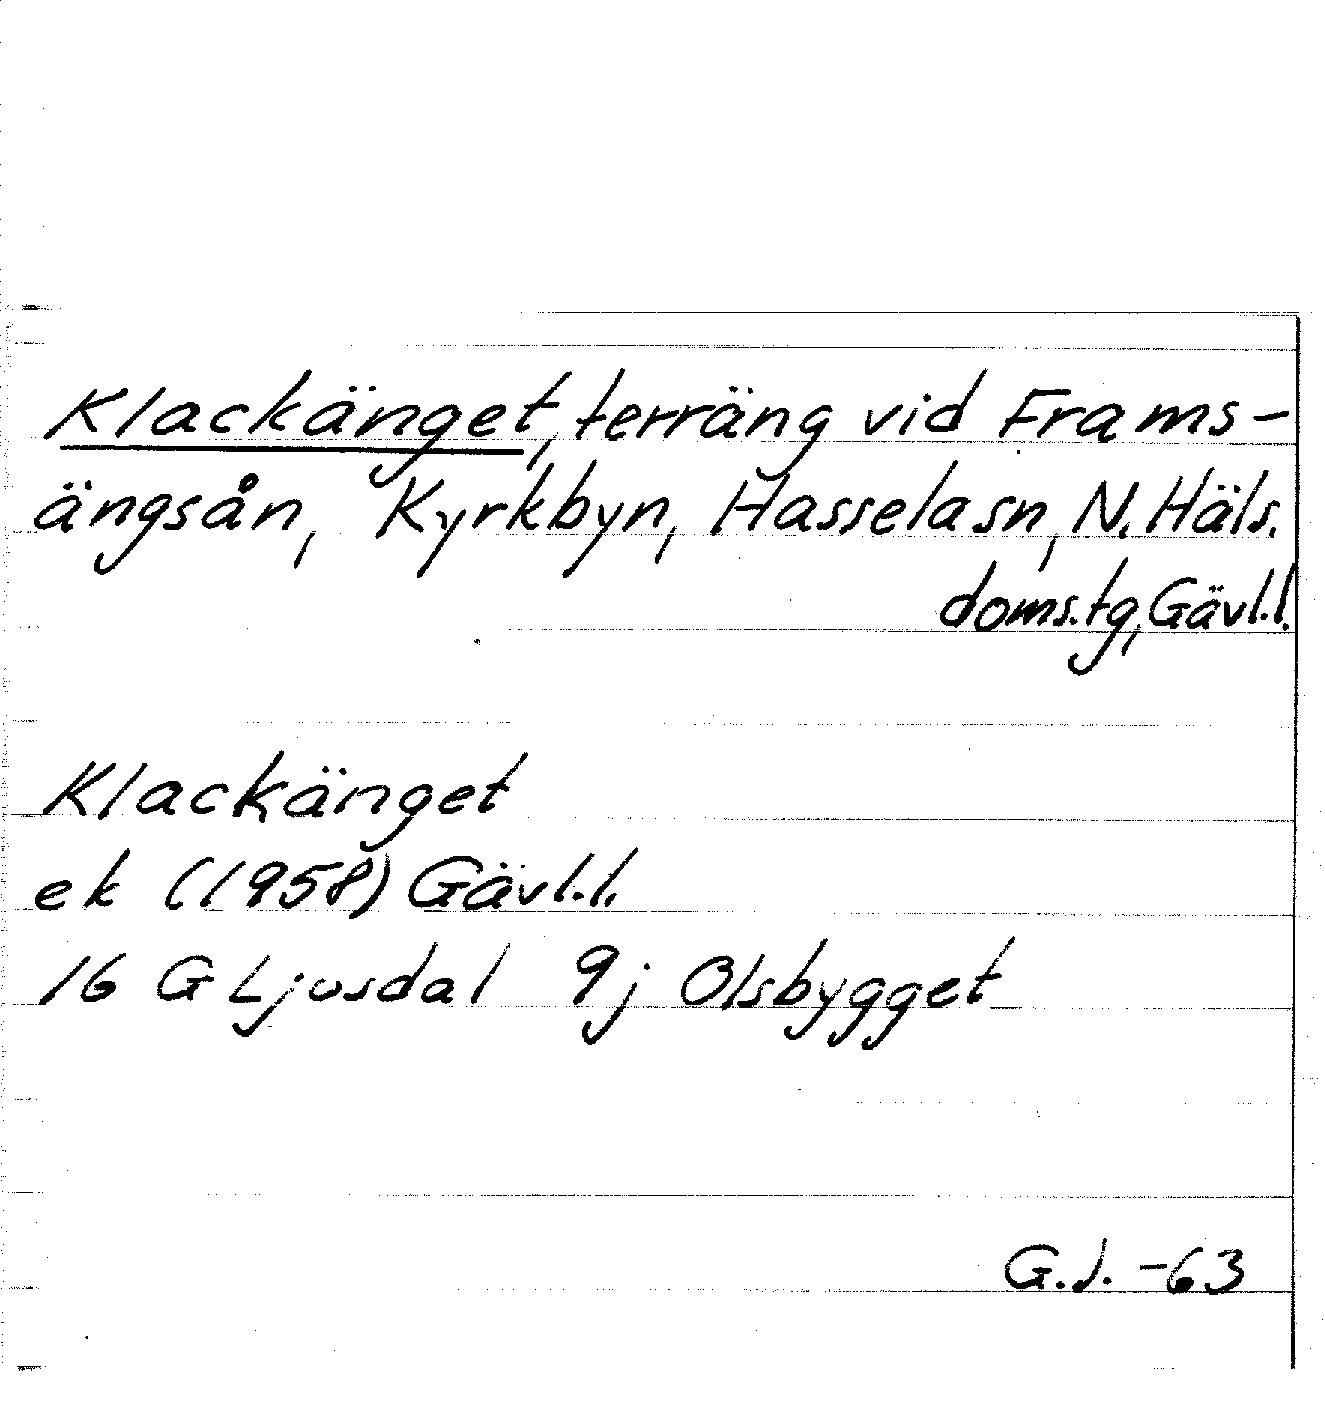 Klackänget, terräng vid Frams-
ängsån, Kyrkbyn, Hasselasn, N. Häls.
doms.tg, Gävl.l.
Klackänget
ek (1958) Gävl.l.
16 G Ljusdal 9j Olsbygget
G.J. -63